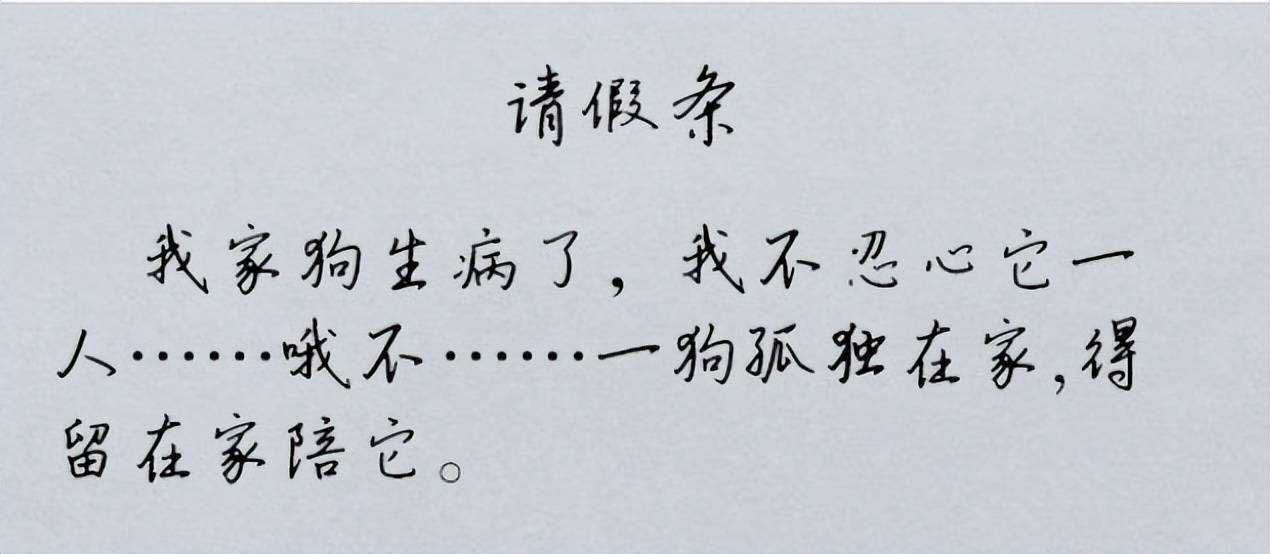 请假条
我家狗生病了，我不忍心它一
人……哦不……一狗孤独在家，得
留在家陪它。